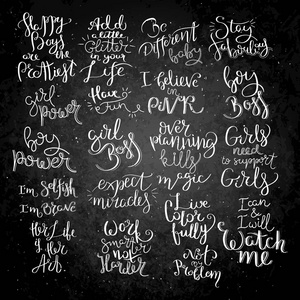 Happy
Boys
are the
Prettiest
Add
a little
Glitter
in your
Life
Be
Different
baby
Stay
Fabulous
girl
Power
Have
Fun
I believe
in
PINK
boy
Boss
boy
power
girl
Boss
over
planning
kills
magic
Girls
need to
support
Girls
I'm Selfish
I'm Brave
expect
miracles
Live
Color
fully
I Can
&
I will
Watch
me
Her Life
&
Her
Art
Work
Smart
Not
Harder
Not
a
Problem